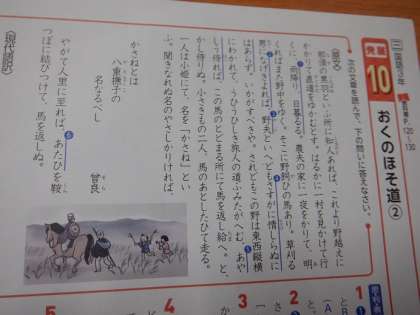 三 国語3年
発展
10
おくのほそ道②
120
130
次の文章を読んで、下の問いに答えなさい。
〈原文〉
那須の黒羽といふ所に知人あれば、これより野越えに
かかりて直道をゆかむとす。はるかに一村を見かけて行
くに、雨降り、日暮るる。農夫の家に一夜をかりて、明
くればまた野中をゆく。そこに野飼ひの馬あり。草刈る
男になげきよれば、野夫といへどもさすがに情しらぬに
はあらず。「いかがすべきや。されどもこの野は東西縦横
にわかれて、うひうひしき旅人の道ふみたがへむ、あや
しう侍れば、この馬のとどまる所にて馬を返し給へ」と、
かし侍りぬ。小さきもの二人、馬のあとしたひて走る。
一人は小姫にて、名を「かさね」とい
ふ。聞きなれぬ名のやさしかりければ、
かさねとは
八重撫子の
名なるべし
曾良
やがて人里に至れば、あたひを鞍
つぼに結びつけて、馬を返しぬ。
〈現代語訳〉
1
2
3
4
5
A
B